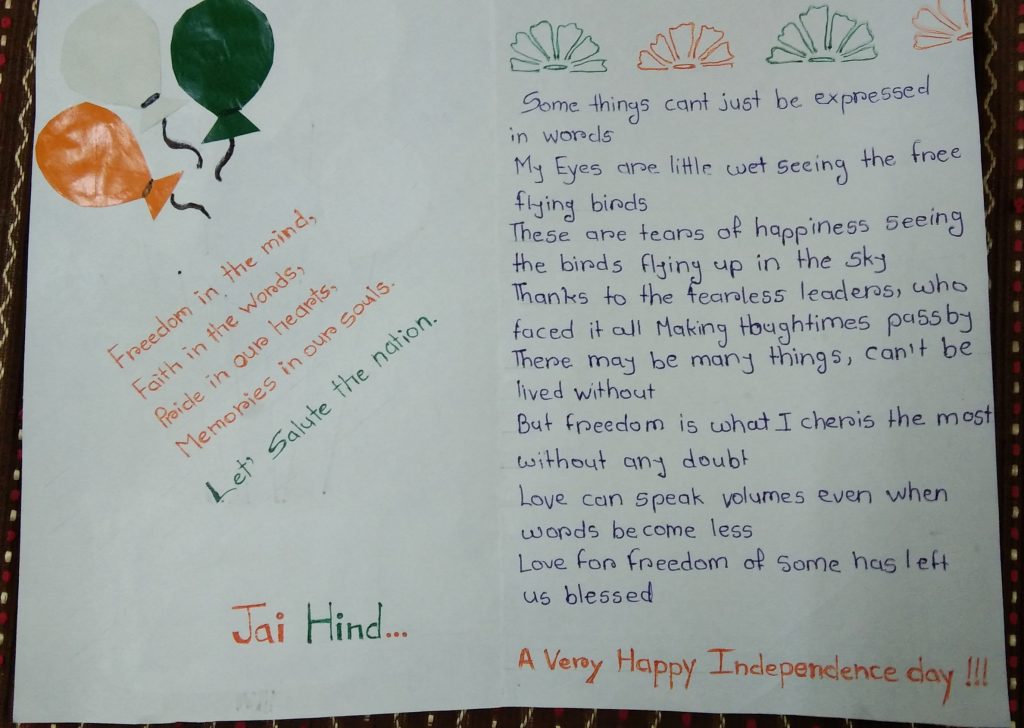 Freedom in the mind,
Faith in the words,
Pride in our hearts,
Memories in our souls.
Let's Salute the nation.
Jai Hind...
Some things cant just be expressed
in words
My Eyes are little wet seeing the free
flying birds
These are tears of happiness seeing
the birds flying up in the sky
Thanks to the fearless leaders, who
faced it all Making toughtimes passby
There may be many things, can't be
lived without
But freedom is what I cheris the most
without any doubt
Love can speak volumes even when
words become less
Love for freedom of some has left
us blessed
A Very Happy Independence day !!!